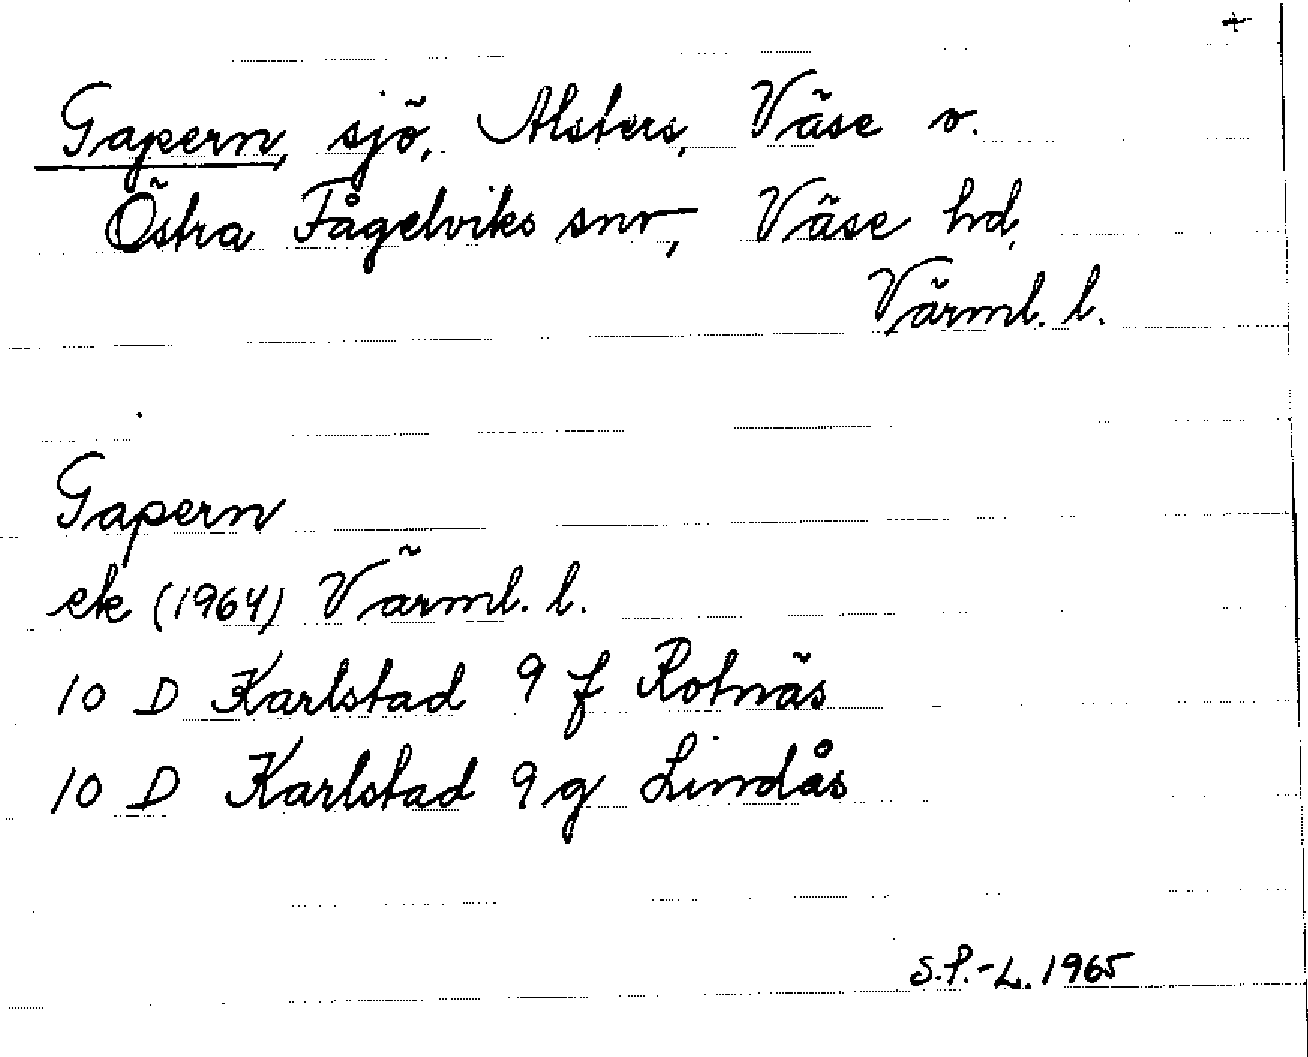 +
Gapern, sjö, Alsters, Väse o.
Östra Fågelviks snr, Väse hd,
Värml. l.
Gapern
ek (1964) Värml. l.
10 D Karlstad 9 f Rotnäs
10 D Karlstad 9 g Lindås
S.P.-L. 1965